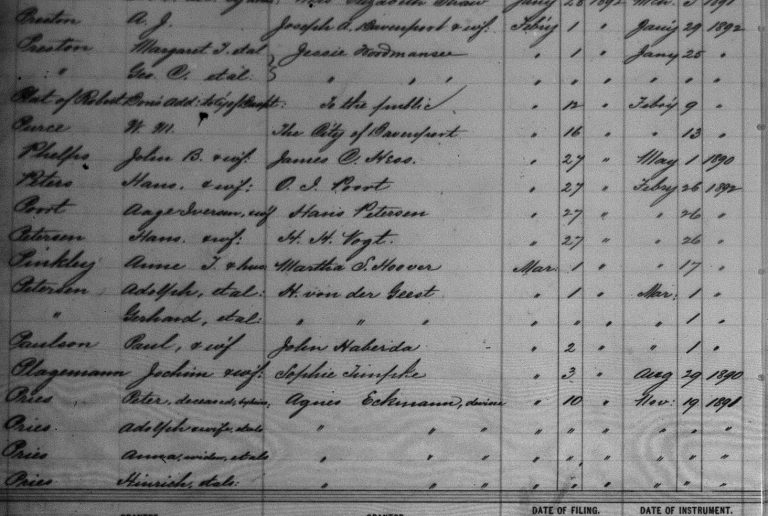 Elizabeth Shaw Jany 28 1892 Mch 3 1891
Preston A. J. Joseph A. Davenport & wf: Febry 1 " Jany 29 1892
Preston Margaret I. et al Jessie Woodmansee " 1 " Jany 25 "
" Geo. C. et al: " " " " " " " " "
Plat of Robert Add: to City of To the public " 12 " Febry 9 "
Purce W. M. The City of Davenport " 16 " " 13 "
Phelps John B. & wf: James C. Hess. " 27 " May 1 1890
Peters Hans. & wf: O. J. Poort " 27 " Febry 26 1892
Poort Aage Iversen, & wf Hans Petersen " 27 " " 26 "
Petersen Hans. & wf: H. H. Vogt. " 27 " " 26 "
Pinkley Anne T. & hus: Martha S. Hoover Mar. 1 " " 17 "
Petersen Adolph, et al: H. von der Geest " 1 " Mar: 1 "
" Gerhard, et al: " " " " " " " 1 "
Paulson Paul, & wf John Haberda " 2 " " 1 "
Plagemann Jochim & wf: Sophie Timpke " 3 " Aug 29 1890
Pries Peter, deceased, Agnes Eckmann, " 10 " Nov: 19 1891
Pries Adolph & wife, et als " " " " " " " " "
Pries Anna, widow, et als " " " " " " " " "
Pries Hinrich, et als: " " " " " " " " "
DATE OF FILING. DATE OF INSTRUMENT.